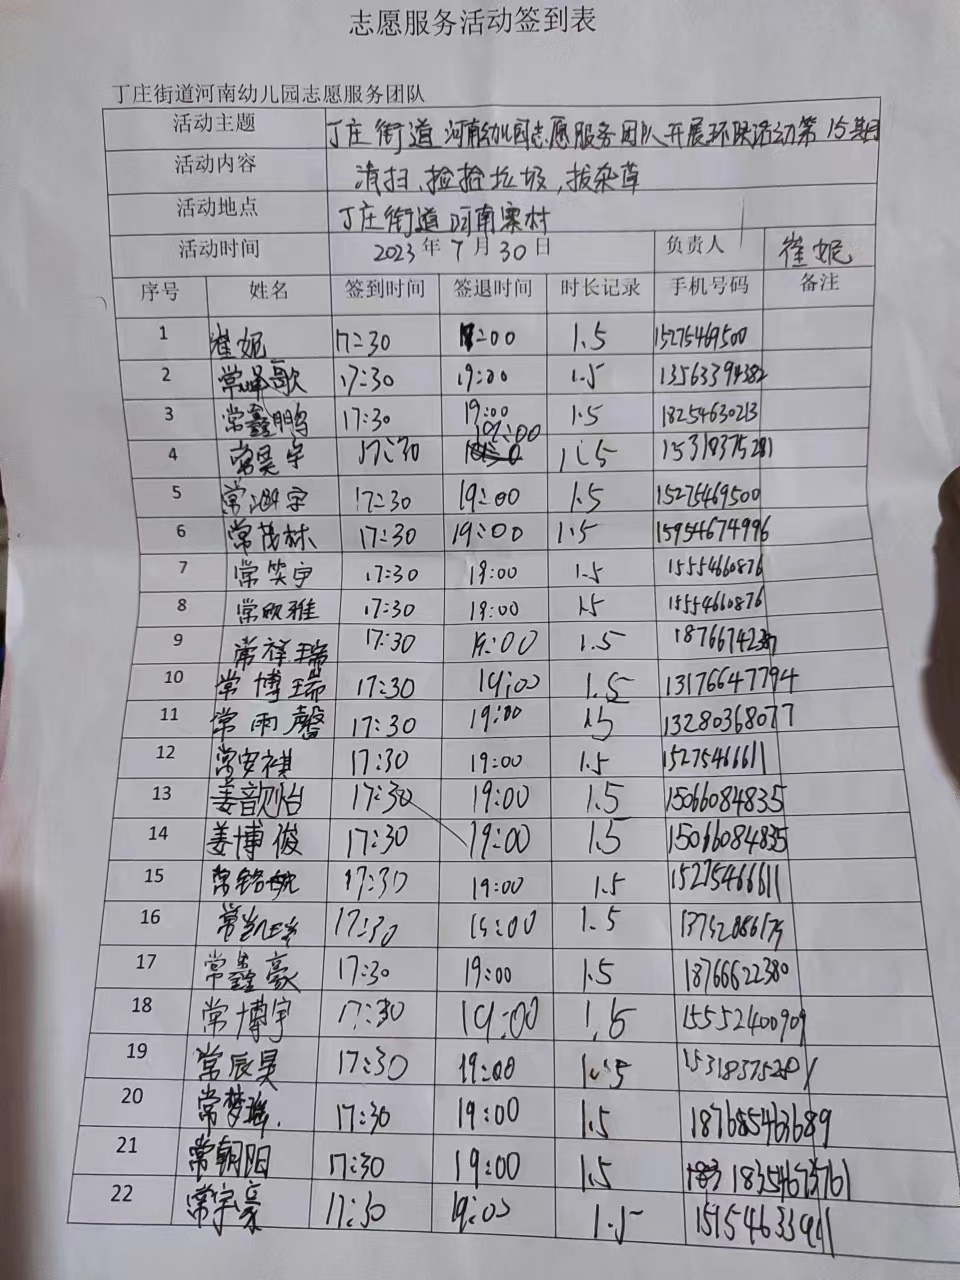 志愿服务活动签到表
丁庄街道河南幼儿园志愿服务团队
活动主题 丁庄街道河南幼儿园志愿服务团队开展环保活动第15期
活动内容 清扫、捡拾垃圾,拔杂草
活动地点 丁庄街道河南寨村
活动时间 2023年7月30日 负责人 崔妮
序号 姓名 签到时间 签退时间 时长记录 手机号码 备注
1 崔妮 17:30 19:00 1.5 15275469500
2 常泽歌 17:30 19:00 1.5 13563394382
3 常鑫鹏 17:30 19:00 1.5 18254630213
4 常昊宇 17:30 19:00 1.5 15318375281
5 常宇 17:30 19:00 1.5 15275469500
6 常茂林 17:30 19:00 1.5 15954674996
7 常笑宇 17:30 19:00 1.5 15554660876
8 常欣雅 17:30 19:00 1.5 15554660876
9 常祥瑞 17:30 19:00 1.5
10 常博瑞 17:30 19:00 1.5 13176647794
11 常雨馨 17:30 19:00 1.5 13280368077
12 常安祺 17:30 19:00 1.5 15275466611
13 姜歆怡 17:30 19:00 1.5 15066084835
14 姜博俊 17:30 19:00 1.5 15066084835
15 常铭航 17:30 19:00 1.5 15275466611
16 常凯 17:30 19:00 1.5
17 常鑫豪 17:30 19:00 1.5 18766622380
18 常博宇 17:30 19:00 1.5 15552400909
19 常辰昊 17:30 19:00 1.5 15318375281
20 常梦瑶. 17:30 19:00 1.5 187685463689
21 常朝阳 17:30 19:00 1.5 18354673761
22 常宇豪 17:30 19:00 1.5 15154633911